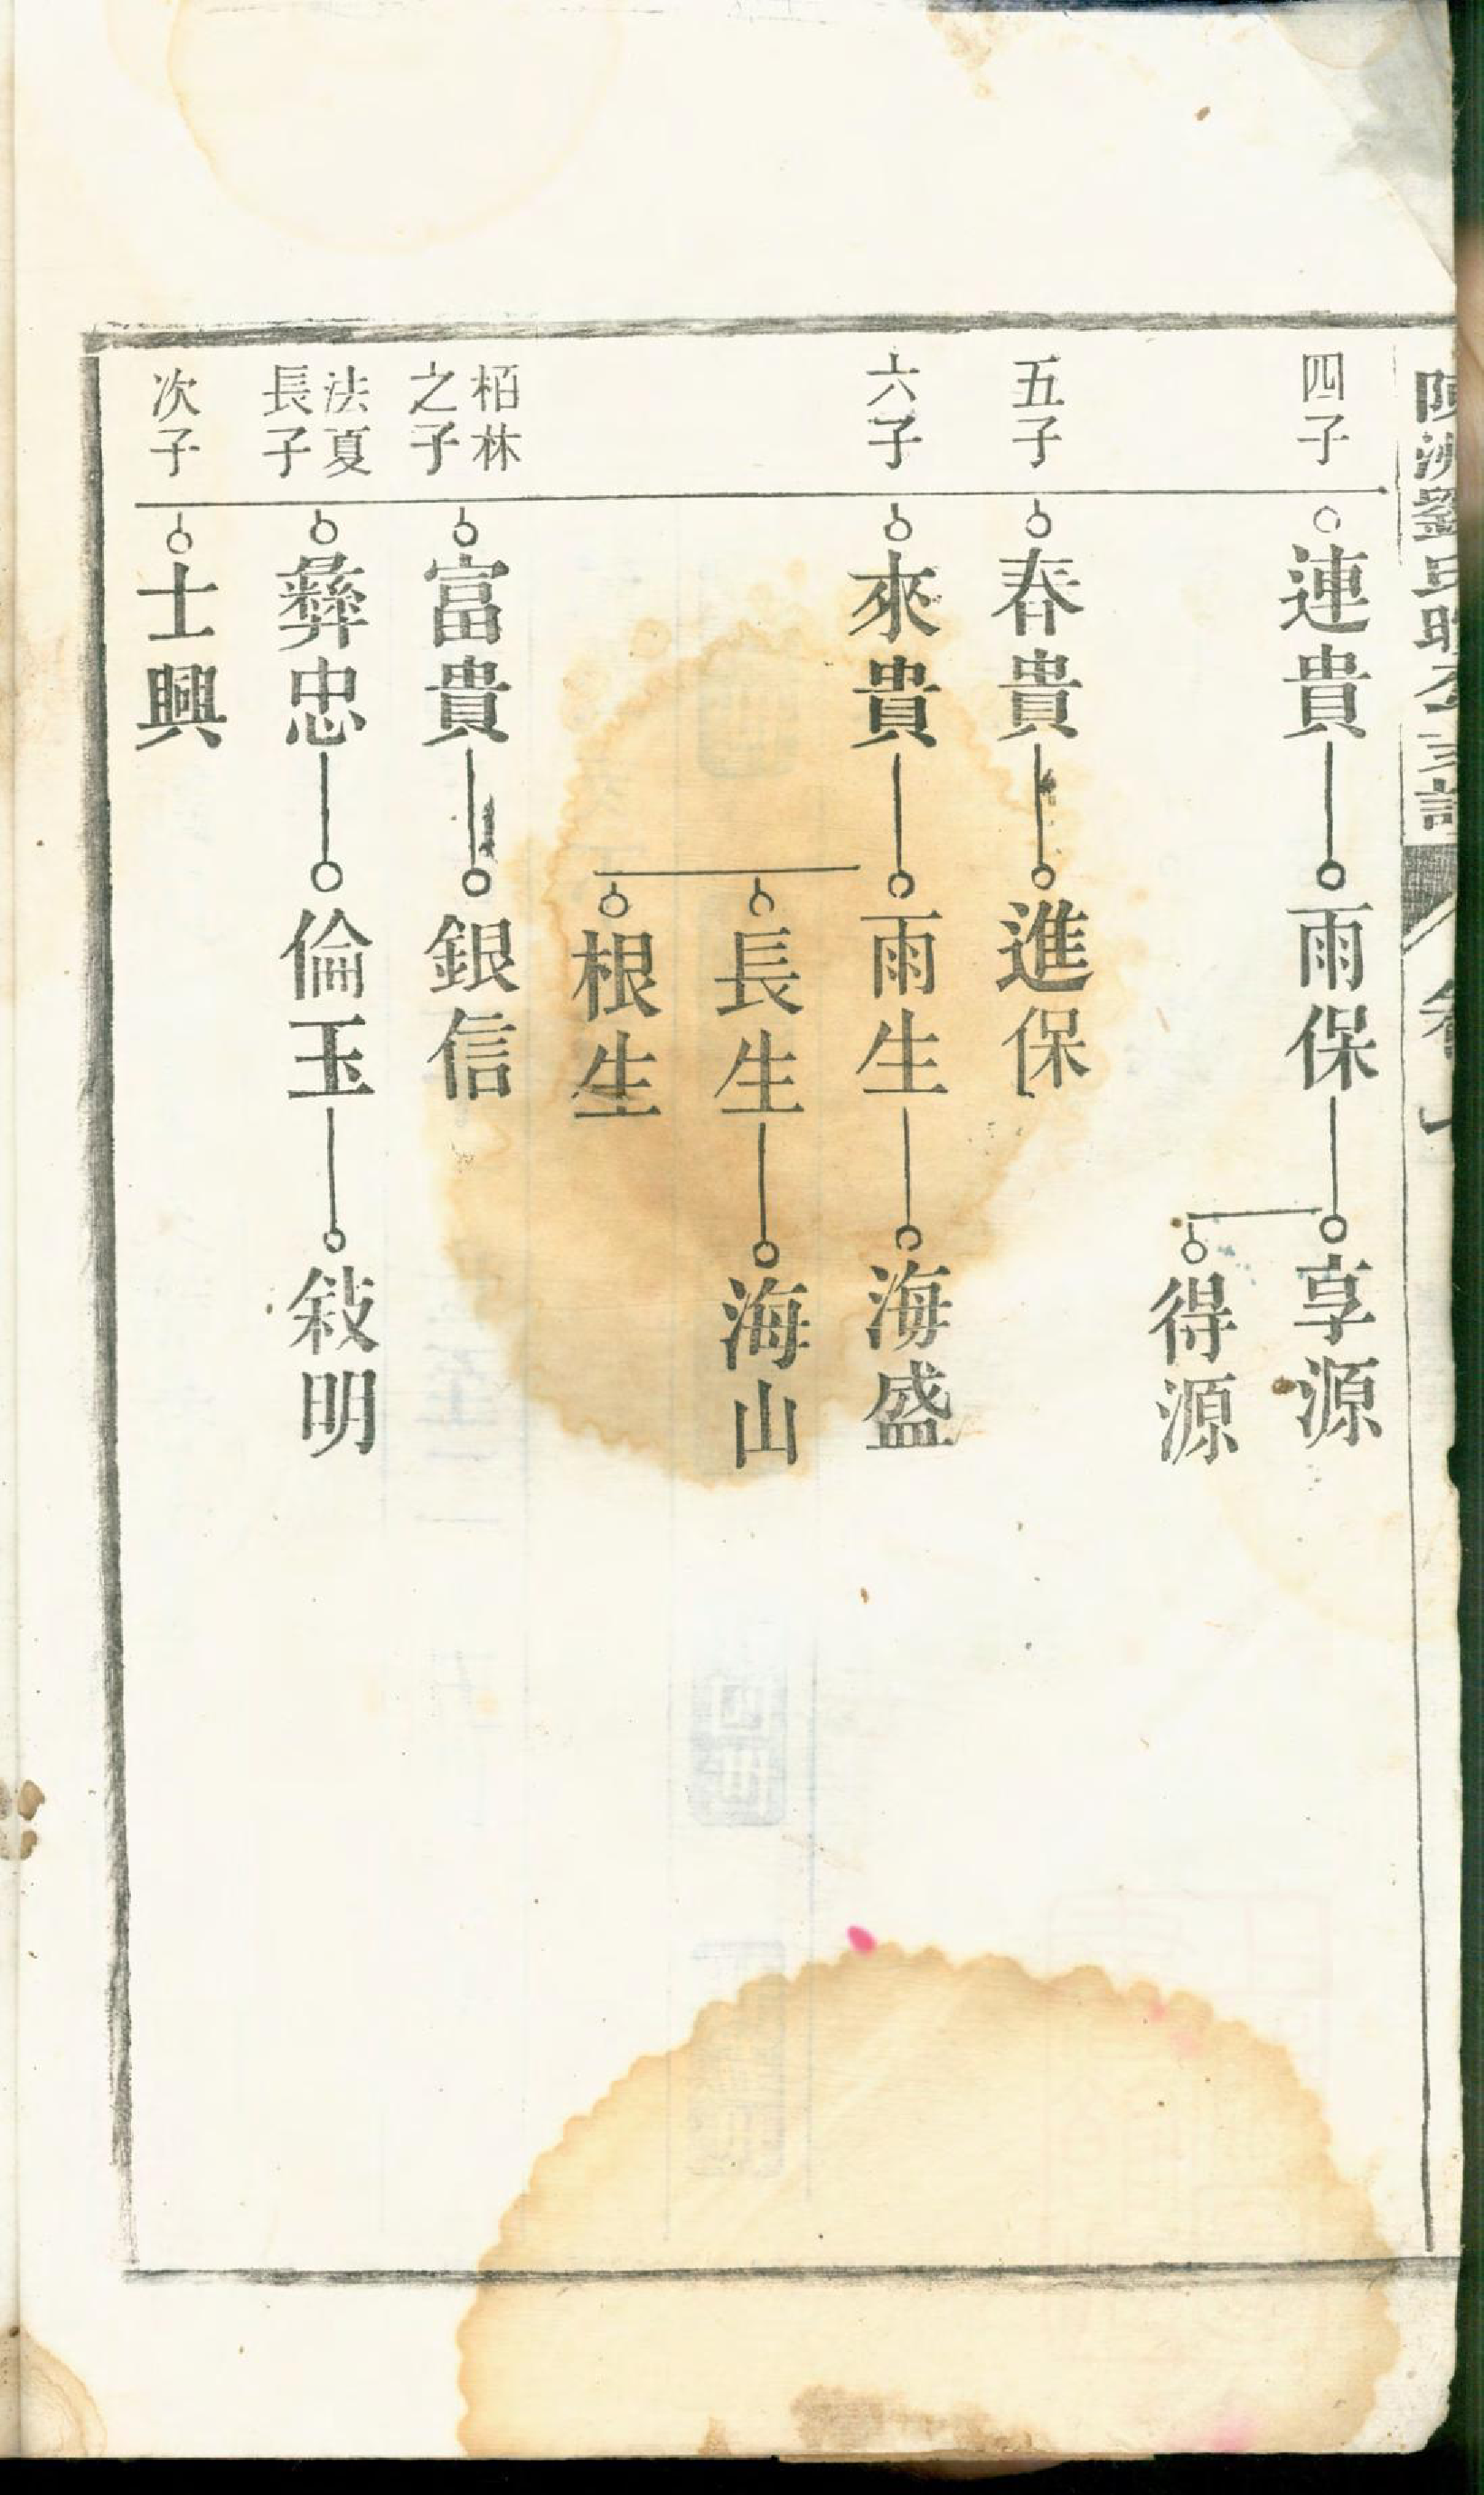 劉氏
四子
連貴
雨保
享源
得源
五子
春貴
進保
六子
來貴
雨生
海盛
長生
海山
根生
栢林
之子
富貴
銀信
法夏
長子
彝忠
倫玉
敍明
次子
士興